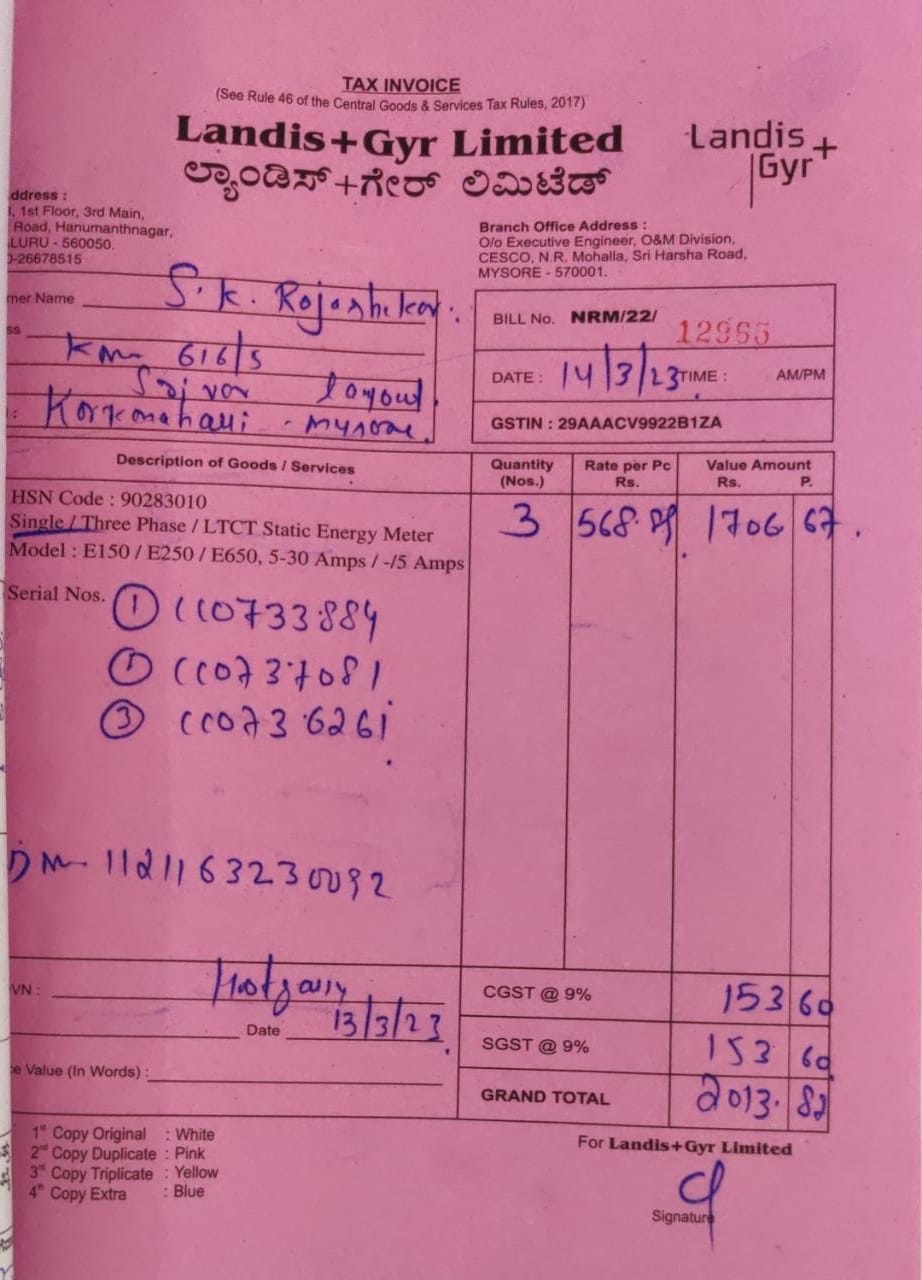 TAX INVOICE
(See Rule 46 of the Central Goods & Services Tax Rules, 2017)
Landis+Gyr Limited
ಲ್ಯಾಂಡಿಸ್+ಗೇರ್ ಲಿಮಿಟೆಡ್
Landis
Gyr+
ddress :
, 1st Floor, 3rd Main,
Road, Hanumanthnagar,
LURU - 560050.
-26678515
Branch Office Address :
O/o Executive Engineer, O&M Division,
CESCO, N.R. Mohalla, Sri Harsha Road,
MYSORE - 570001.
mer Name S.K. Rajashekar.
ss
616/5
layout
Mysore.
BILL No. NRM/22/ 12965
DATE : 14/3/23 TIME : AM/PM
GSTIN : 29AAACV9922B1ZA
Description of Goods / Services Quantity (Nos.) Rate per Pc Rs. Value Amount Rs. P.
HSN Code : 90283010
Single / Three Phase / LTCT Static Energy Meter 3 568.89 1706 67
Model : E150 / E250 / E650, 5-30 Amps / -/5 Amps
Serial Nos.
① CC0733884
① CC0737081
③ CC0736261
VN :
Date 13/3/23
e Value (In Words) :
CGST @ 9% 153 60
SGST @ 9% 153 60
GRAND TOTAL 2013. 82
1st Copy Original : White
2nd Copy Duplicate : Pink
3rd Copy Triplicate : Yellow
4th Copy Extra : Blue
For Landis+Gyr Limited
Signature